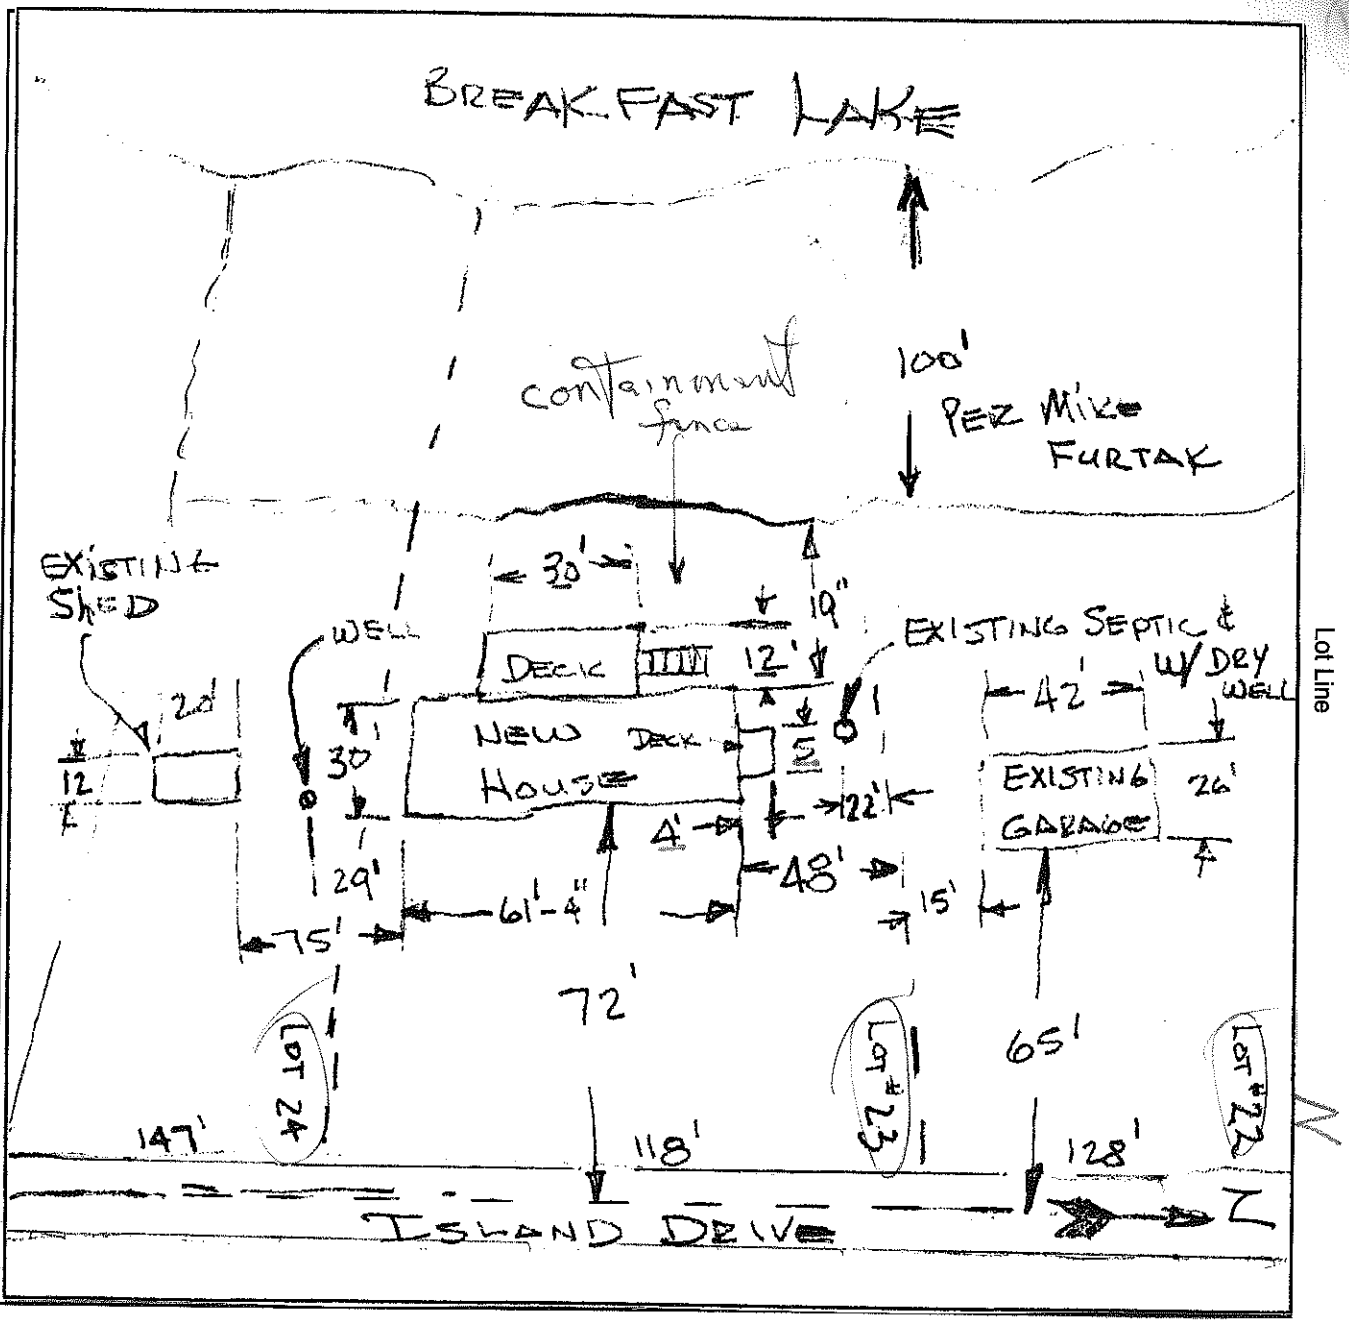 BREAKFAST LAKE
containment
fence
100'
PER MIKE
FURTAK
EXISTING
SHED
WELL
30'
19"
EXISTING SEPTIC &
W/ DRY
WELL
DECK
12'
42'
20'
12
30'
NEW
HOUSE
DECK
5
EXISTING
GARAGE
26'
22'
4'
29'
61'-4"
48'
15'
75'
72'
65'
LOT 24
LOT #23
LOT #22
147'
118'
128'
ISLAND DRIVE
N
Lot Line
N